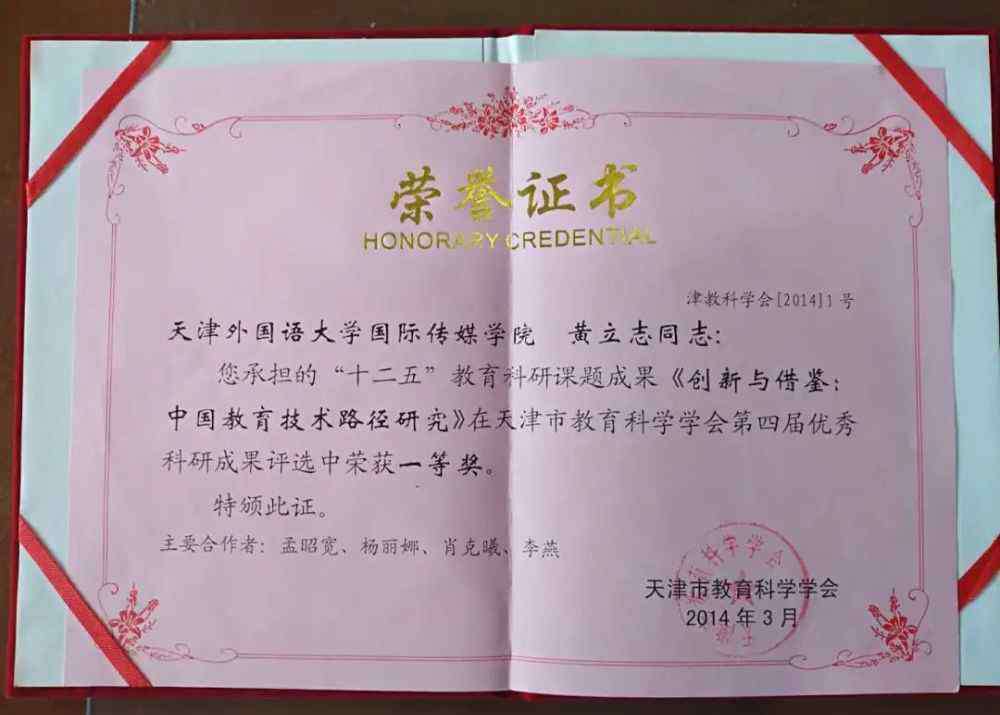 荣誉证书
HONORARY CREDENTIAL
津教科学会[2014]1号
天津外国语大学国际传媒学院 黄立志同志:
您承担的“十二五”教育科研课题成果《创新与借鉴:
中国教育技术路径研究》在天津市教育科学学会第四届优秀
科研成果评选中荣获一等奖。
特颁此证。
主要合作者:孟昭宽、杨丽娜、肖克曦、李燕
天津市教育科学学会
2014年3月